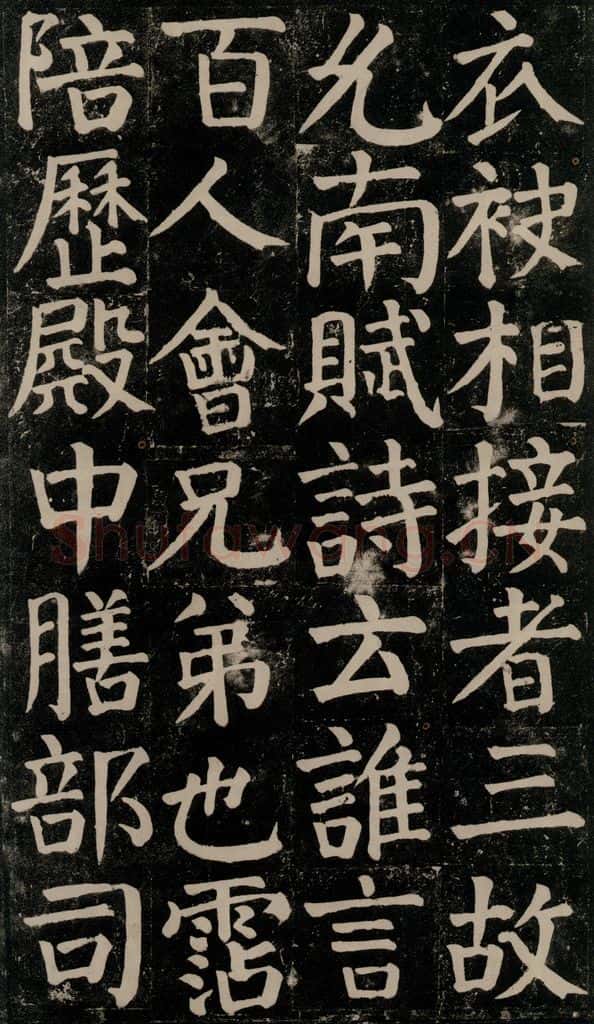 衣袂相接者三故
允南賦詩云誰言
百人會兄弟也霑
陪歷殿中膳部司
shufawang.cn